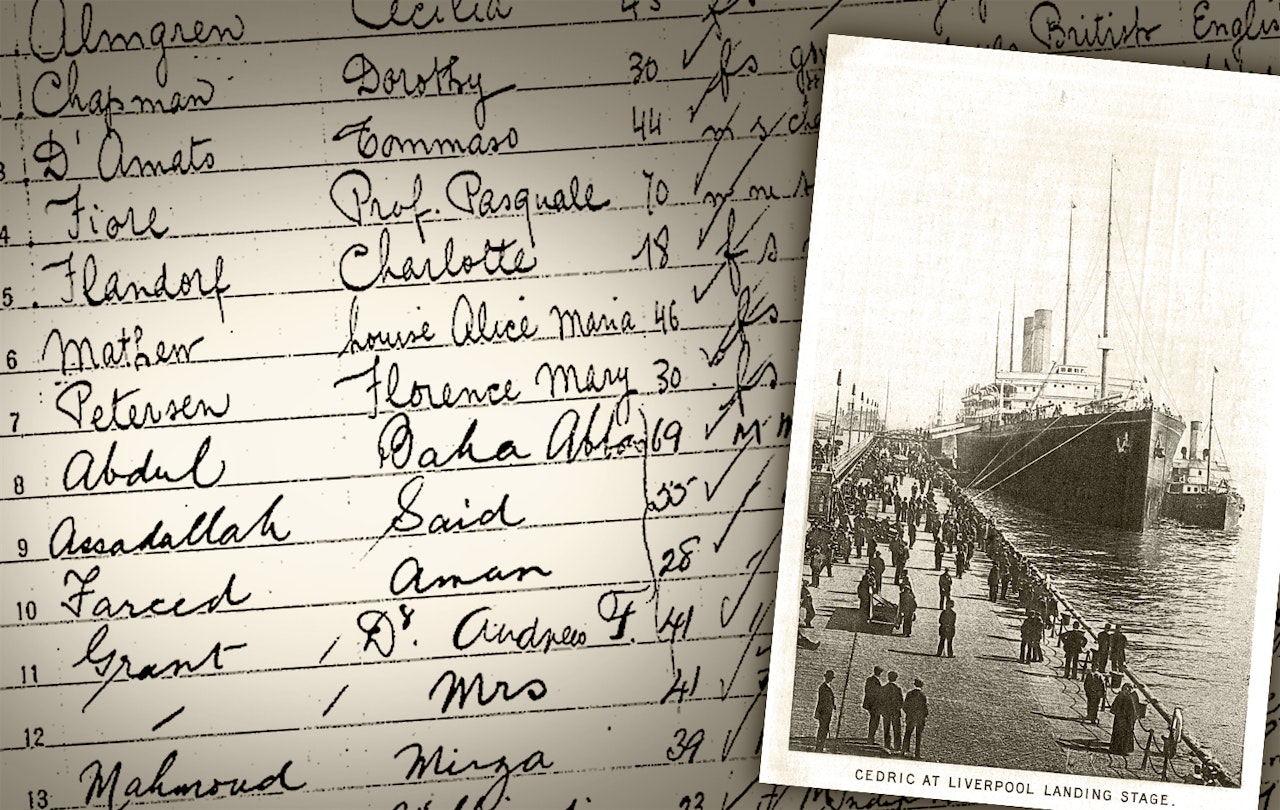 Almgren Cecilia 45
Chapman Dorothy 30 f s
3 D'Amato Tommaso 44 m s
4 Fiore Prof. Pasquale 70 m m
5 Flandorf Charlotte 18 f s
6 Mathew Louise Alice Maria 46 f s
7 Petersen Florence Mary 30 f s
8 Abdul Baha Abbas 69 M M
9 Assadallah Said 55
10 Fareed Aman 28
11 Grant Dr. Andrew F. 41
12 Mrs 41
13 Mahmoud Mirza 39
British English
CEDRIC AT LIVERPOOL LANDING STAGE.